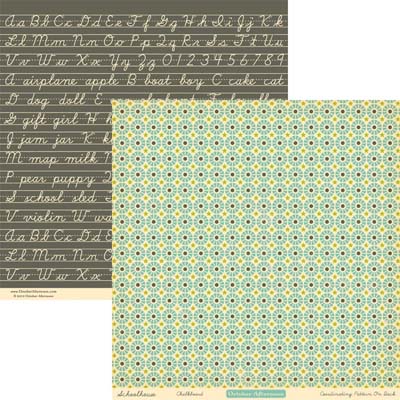 Aa Bb Cc Dd Ee Ff Gg Hh Ii Jj Kk
Ll Mm Nn Oo Pp Qq Rr Ss Tt
Uu Vv Ww Xx Yy Zz 0 1 2 3 4 5 6 7 8 9
A airplane apple B boat boy C cake cat
D dog doll E
G gift girl H
J jam jar K
M map milk
P pear puppy
S school sled
U violin W
Aa Bb Cc Dd
Ll Mm Nn
Uu Vv Ww Xx
www.OctoberAfternoon.com
© 2010 October Afternoon
Schoolhouse Chalkboard October Afternoon Coordinating Pattern On Back